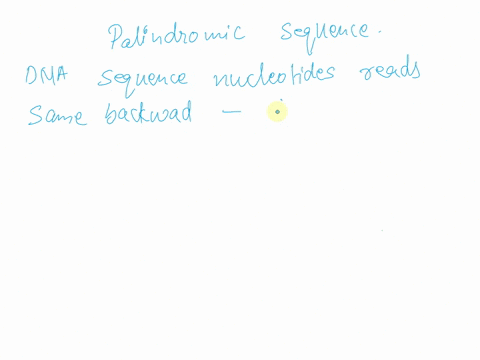 Palindromic sequence.
DNA sequence nucleotides reads
Same backwad -